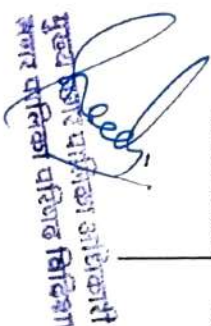 मुख्य नगर पालिका अधिकारी
नगर पालिका परिषद विदिशा